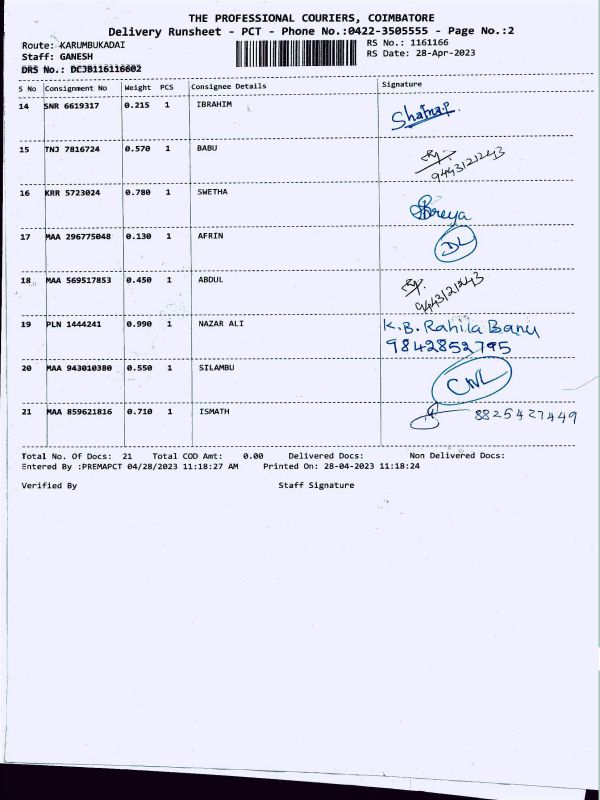 THE PROFESSIONAL COURIERS, COIMBATORE
Delivery Runsheet - PCT - Phone No.:0422-3505555 - Page No.:2
Route: KARUMBUKADAI RS No.: 1161166
Staff: GANESH RS Date: 28-Apr-2023
DRS No.: DCJB116116602
S No Consignment No Weight PCS Consignee Details Signature
14 SNR 6619317 0.215 1 IBRAHIM
15 TNJ 7816724 0.570 1 BABU 9443121243
16 KRR 5723024 0.780 1 SWETHA Shreya
17 MAA 296775048 0.130 1 AFRIN DL
18 MAA 569517853 0.450 1 ABDUL 9443121243
19 PLN 1444241 0.990 1 NAZAR ALI K.B. Rahila Banu
9842852795
20 MAA 943010380 0.550 1 SILAMBU CNL
21 MAA 859621816 0.710 1 ISMATH 8825427449
Total No. Of Docs: 21 Total COD Amt: 0.00 Delivered Docs: Non Delivered Docs:
Entered By :PREMAPCT 04/28/2023 11:18:27 AM Printed On: 28-04-2023 11:18:24
Verified By Staff Signature